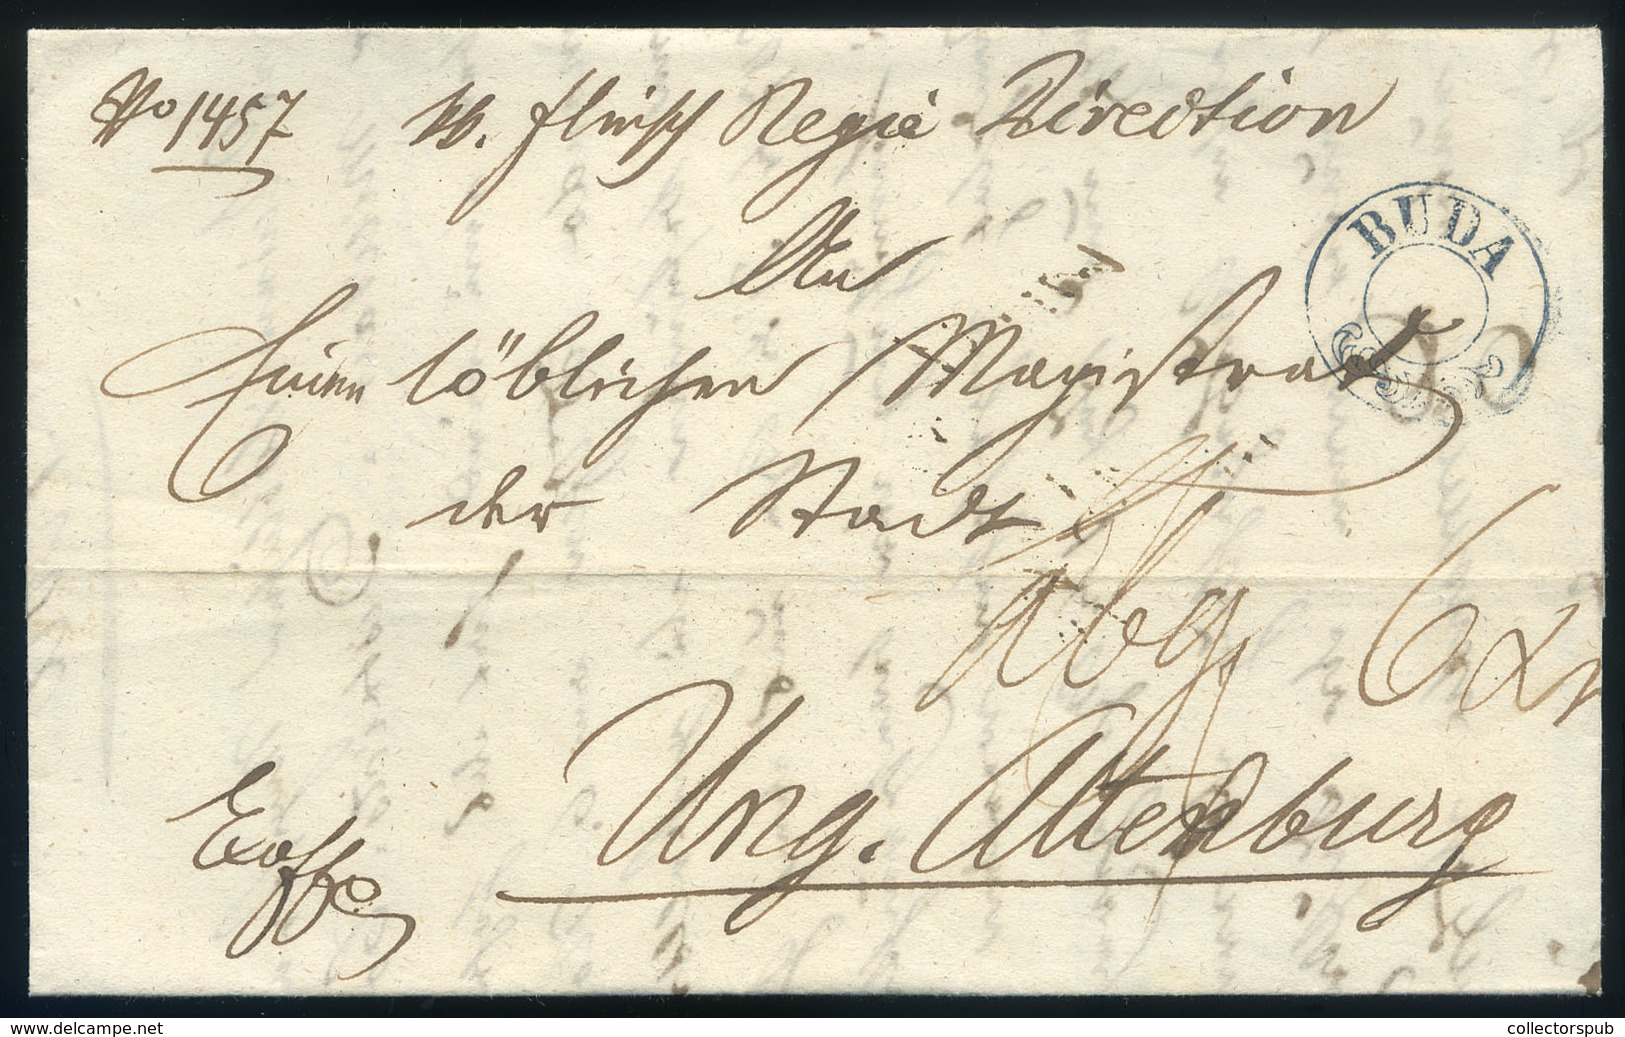 No 1457 Kk. Fleisch Regie Direction
BUDA
An
Einen löblichen Magistrat
der Stadt
6 xr
Ung. Altenburg
Exoffo
www.delcampe.net
collectorspub